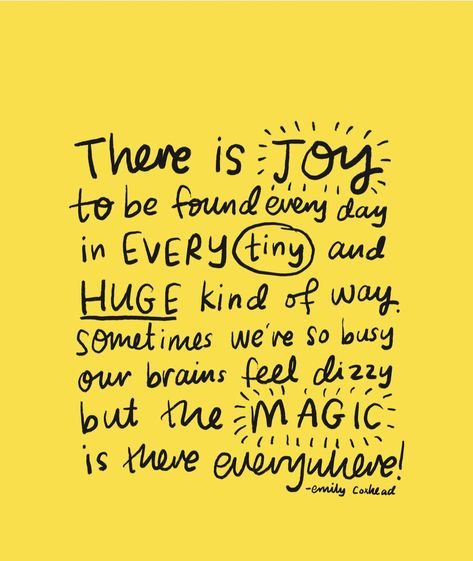 There is JOY
to be found every day
in EVERY tiny and
HUGE kind of way.
sometimes we're so busy
our brains feel dizzy
but the MAGIC
is there everywhere!
-emily coxhead